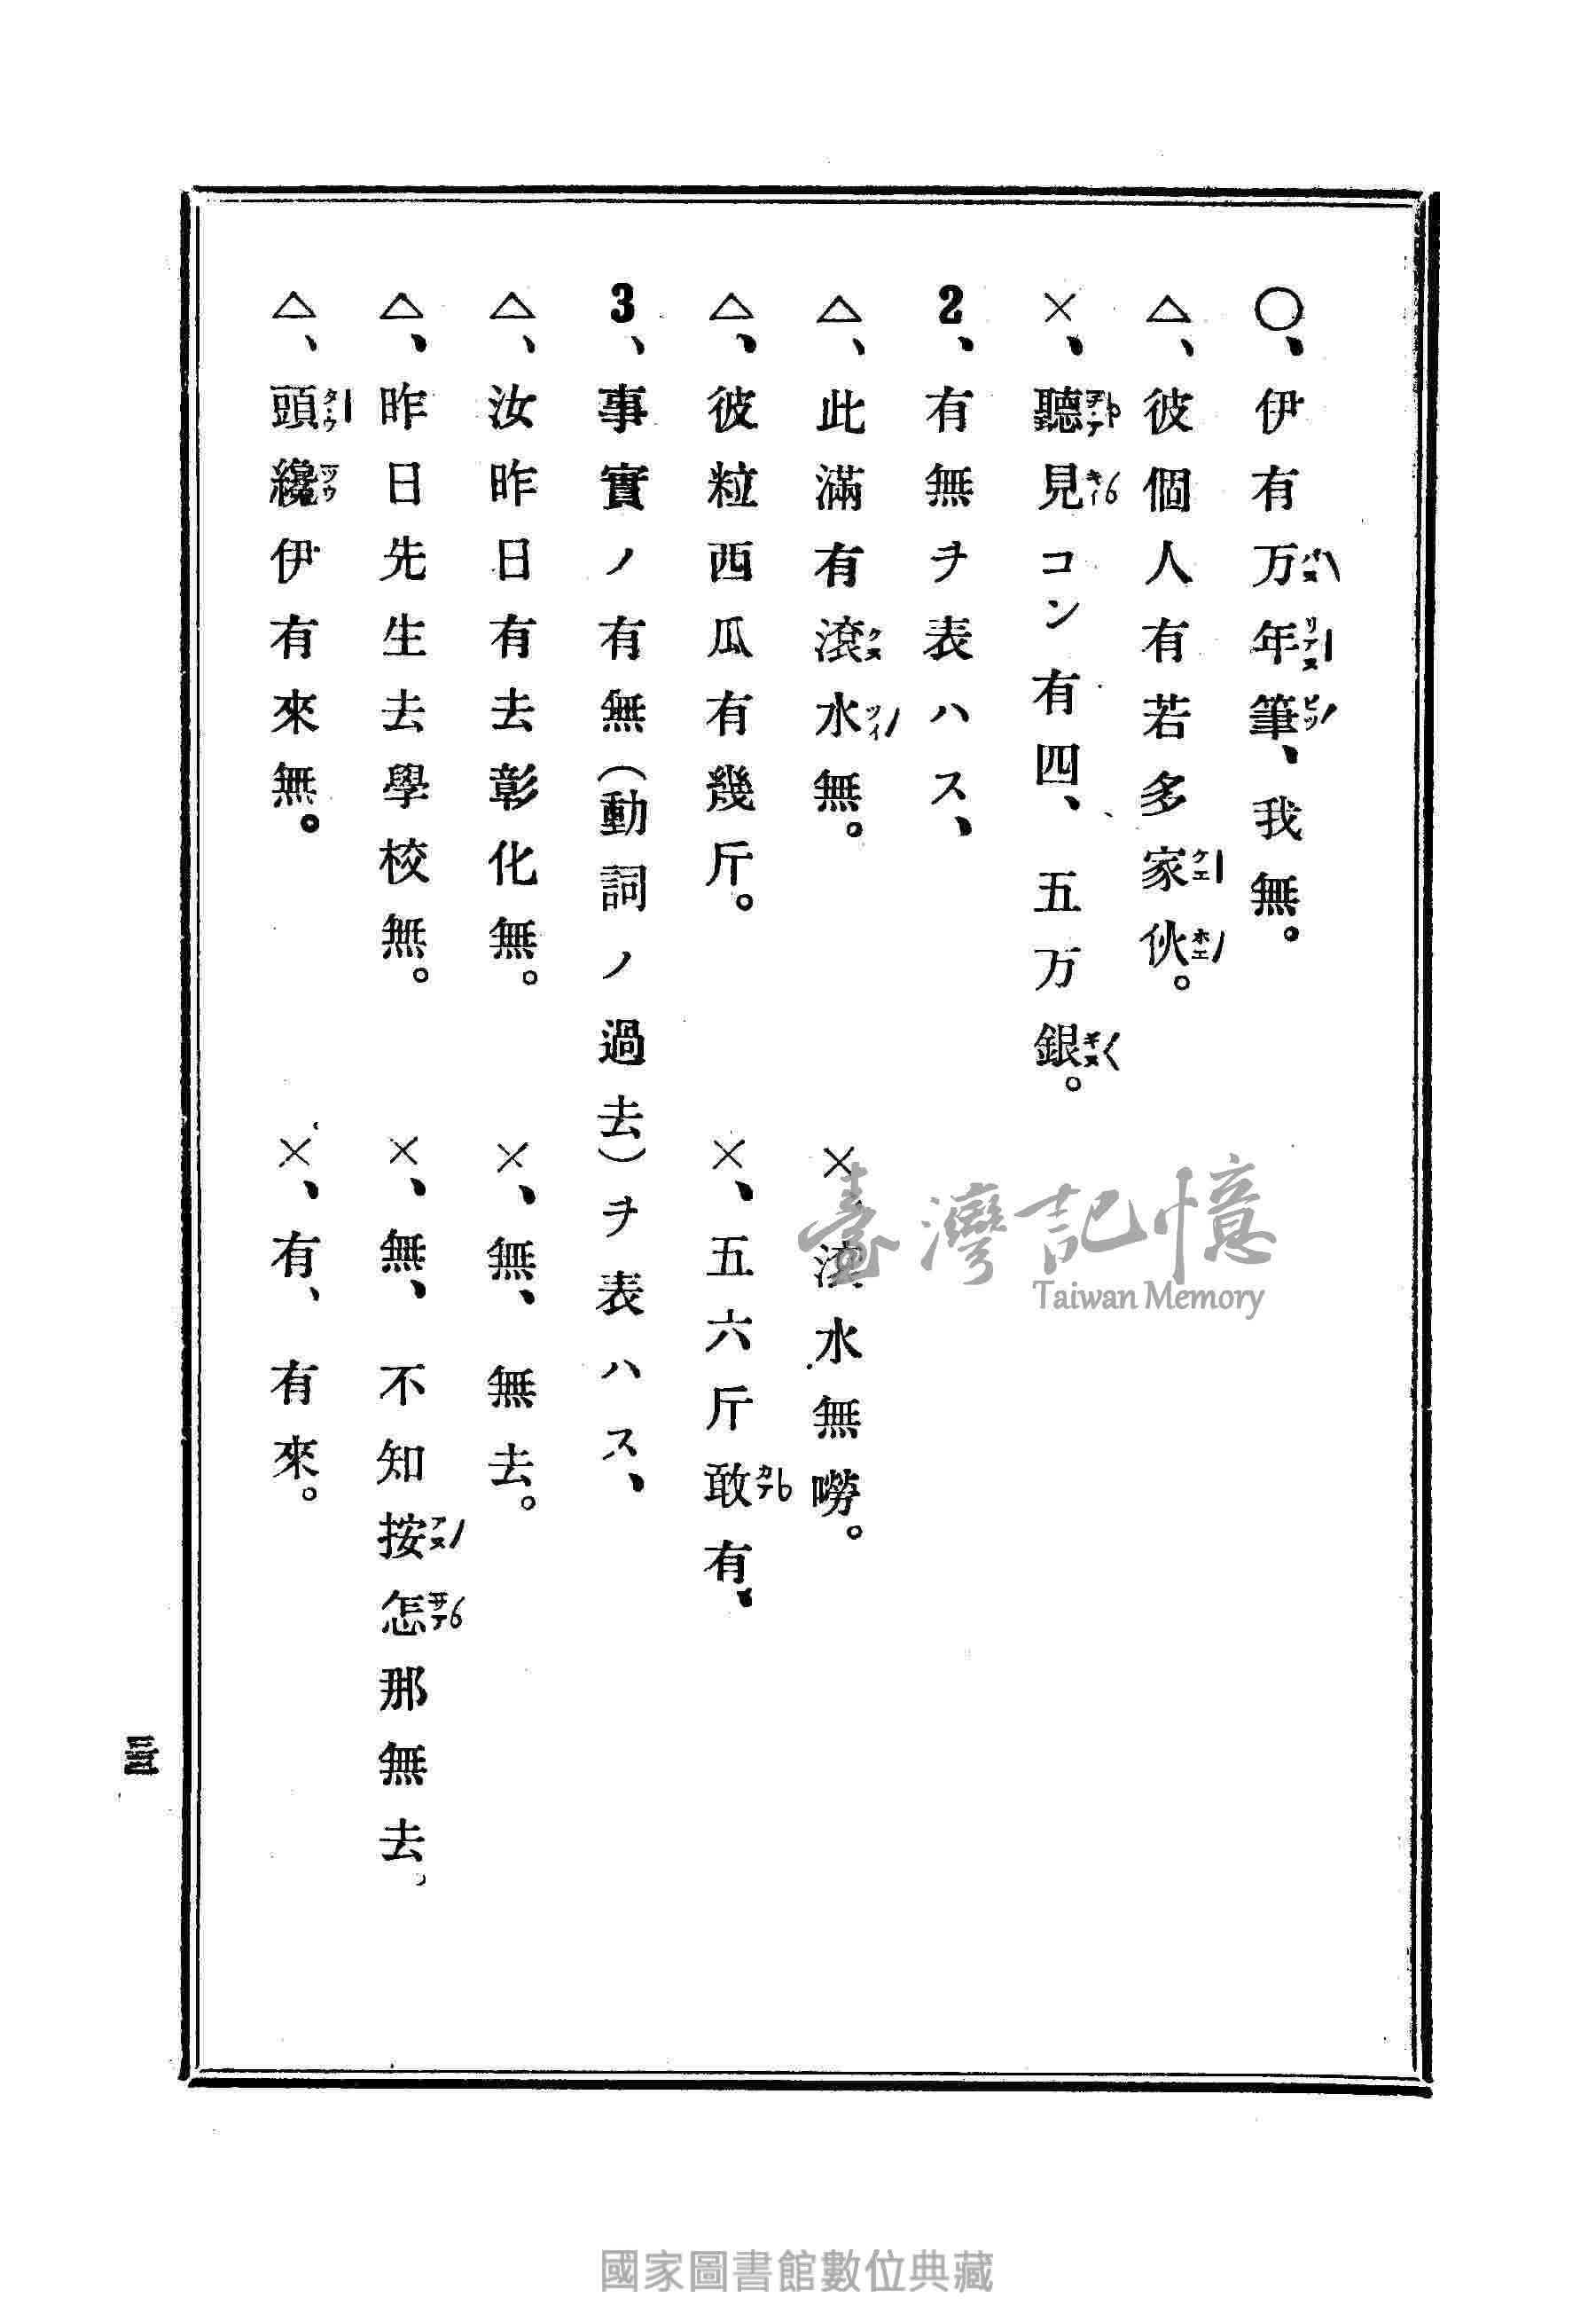 ○、伊有万年筆、我無。
△、彼個人有若多家伙。
×、聽見コン有四、五万銀。
2、有無ヲ表ハス、
△、此滿有滾水無。 × 滾水無嘮。
△、彼粒西瓜有幾斤。 ×、五六斤敢有、
3、事實ノ有無(動詞ノ過去)ヲ表ハス、
△、汝昨日有去彰化無。 ×、無、無去。
△、昨日先生去學校無。 ×、無、不知按怎那無去。
△、頭纔伊有來無。 ×、有、有來。
臺灣記憶
Taiwan Memory
國家圖書館數位典藏